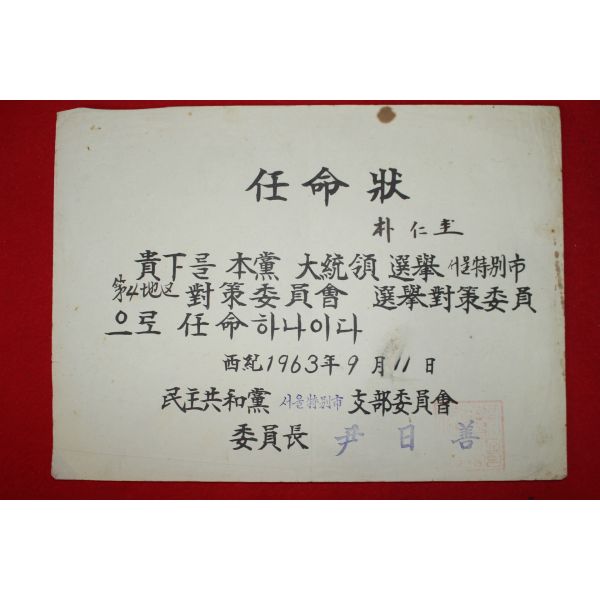 任命狀
朴 仁 圭
貴下를 本黨 大統領 選擧 서울特別市
第4地区 對策委員會 選擧對策委員
으로 任命하나이다
西紀 1963年 9月 11日
民主共和黨 서울特別市 支部委員會
委員長 尹日善